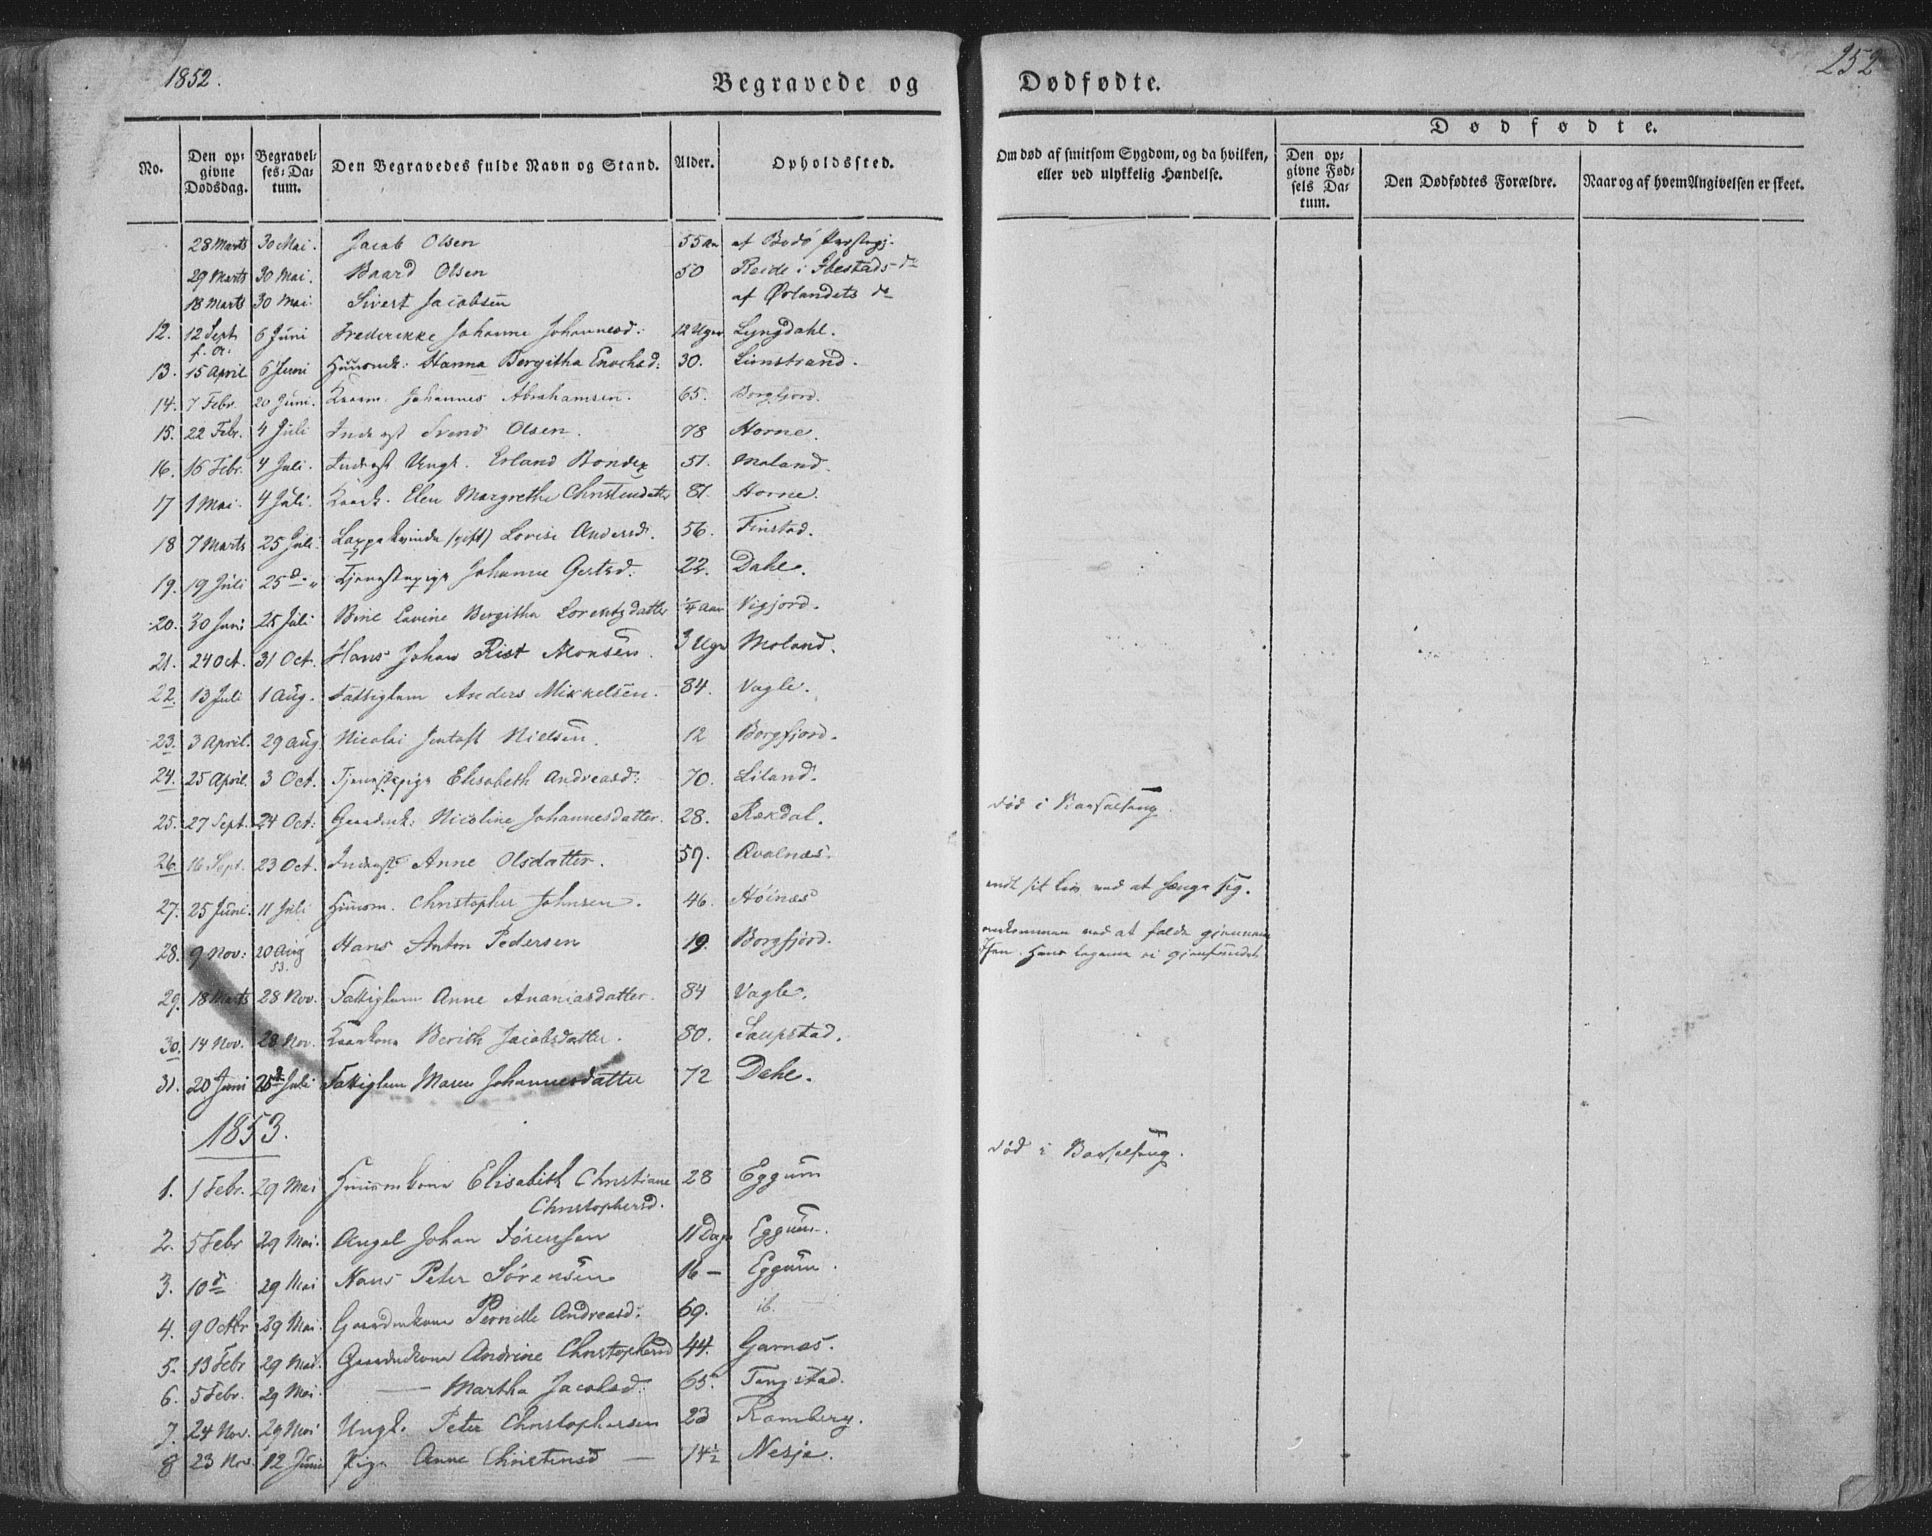 1852.
Begravede og Dødfødte.
252
No.
Den opgivne Dødsdag.
Begravelses-Datum.
Den Begravedes fulde Navn og Stand.
Alder.
Opholdssted.
Om død af smitsom Sygdom, og da hvilken, eller ved ulykkelig Hændelse.
Dødfødte.
Den opgivne Fødsels Datum.
Den Dødfødtes Forældre.
Naar og af hvem Angivelsen er skeet.
28 Marts 30 Mai. Jacob Olsen 55 Aar af Bodø Præstegj.
29 Marts 30 Mai. Baard Olsen 50 Reide i Ibestads do
18 Marts 30 Mai Sivert Jacobsen af Ørlandets do
12. 12 Sept f. A. 6 Juni Frederikke Johanne Johannesd: 12 Uger Lyngdahl.
13. 15 April 6 Juni Huusmk: Hanna Bergitha Enochsd: 30. Limstrand.
14. 7 Febr. 20 Juni. Kaarm. Johannes Abrahamsen. 65. Borgfjord.
15. 22 Febr. 4 Juli Inderst Svend Olsen. 78 Horne.
16. 16 Febr. 4 Juli. Inderst Ungk. Erland Bonde 51. Moland.
17 1 Mai. 4 Juli. Kaark. Elen Margrethe Christensdatter 81. Horne.
18 7 Marts 25 Juli. Lappekvinde (gift) Lovise Andersd. 56. Finstad.
19. 19 Juli 25 d. Tjenestepige Johanna Gertsd: 22. Dahl.
20. 30 Juni 25 Juli Bine Lavine Bergitha Lorentzdatter 1/4 Aar Vigjord.
21. 24 Oct. 31 Oct. Hans Johan Rist Monsen. 3 Uger Moland.
22. 13 Juli 1 Aug. Fattiglem Anders Mikkelsen. 84. Vagle.
23. 3 April. 29 Aug Nicolai Nielsen. 12 Borgfjord.
24. 25 April. 3 Oct. Tjenestepige Elisabeth Andreasd: 70. Liland.
25. 27 Sept. 24 Oct: Gaardmk: Nicoline Johannesdatter. 28. Rækdal. død i Barselseng.
26. 16 Sept. 23 Oct. Inderst Anne Olsdatter. 57. Qvalnæs.
27. 25 Juni. 11 Juli Huusm. Christopher Johnsen. 46. Høinæs endt sit Liv ved at hænge sig.
28. 9 Nov: 20 Aug 53. Hans Anton Pedersen 19. Borgfjord. omkommen ved at falde gjennem Isen. Hans Legeme ei gjenfundet.
29. 18 Marts 28 Nov. Fattiglem Anne Ananiasdatter. 84 Vagle.
30. 14 Nov. 28 Nov. Kaarkone Berith Jacobsdatter. 80. Saupstad.
31. 20 Juni 25 Juli Fattiglem Maren Johannesdatter 72 Dahl.
1853.
1. 1 Febr. 29 Mai Huusmkone Elisabeth Christiane 28 Eggum død i Barselseng.
Christophersd.
2. 5 Febr 29 Mai. Angel Johan Sørensen 11 Dage Eggum.
3. 10 d 29 Mai Hans Peter Sørensen 16 — Eggum.
4. 9 Octbr 29 Mai. Gaardmkone Pernille Andreasd: 69. ib.
5. 13 Febr 29 Mai. Gaardmkone Andrine Christophersd 44. Garnæs.
6. 5 Febr. 29 Mai. — Martha Jacobsd: 65. Tangstad.
7. 24 Nov. 29 Mai Ungk. Peter Christophersen 23 Ramberg.
8 23 Nov. 12 Juni Pige Anne Christensd — 14½ Nesje.